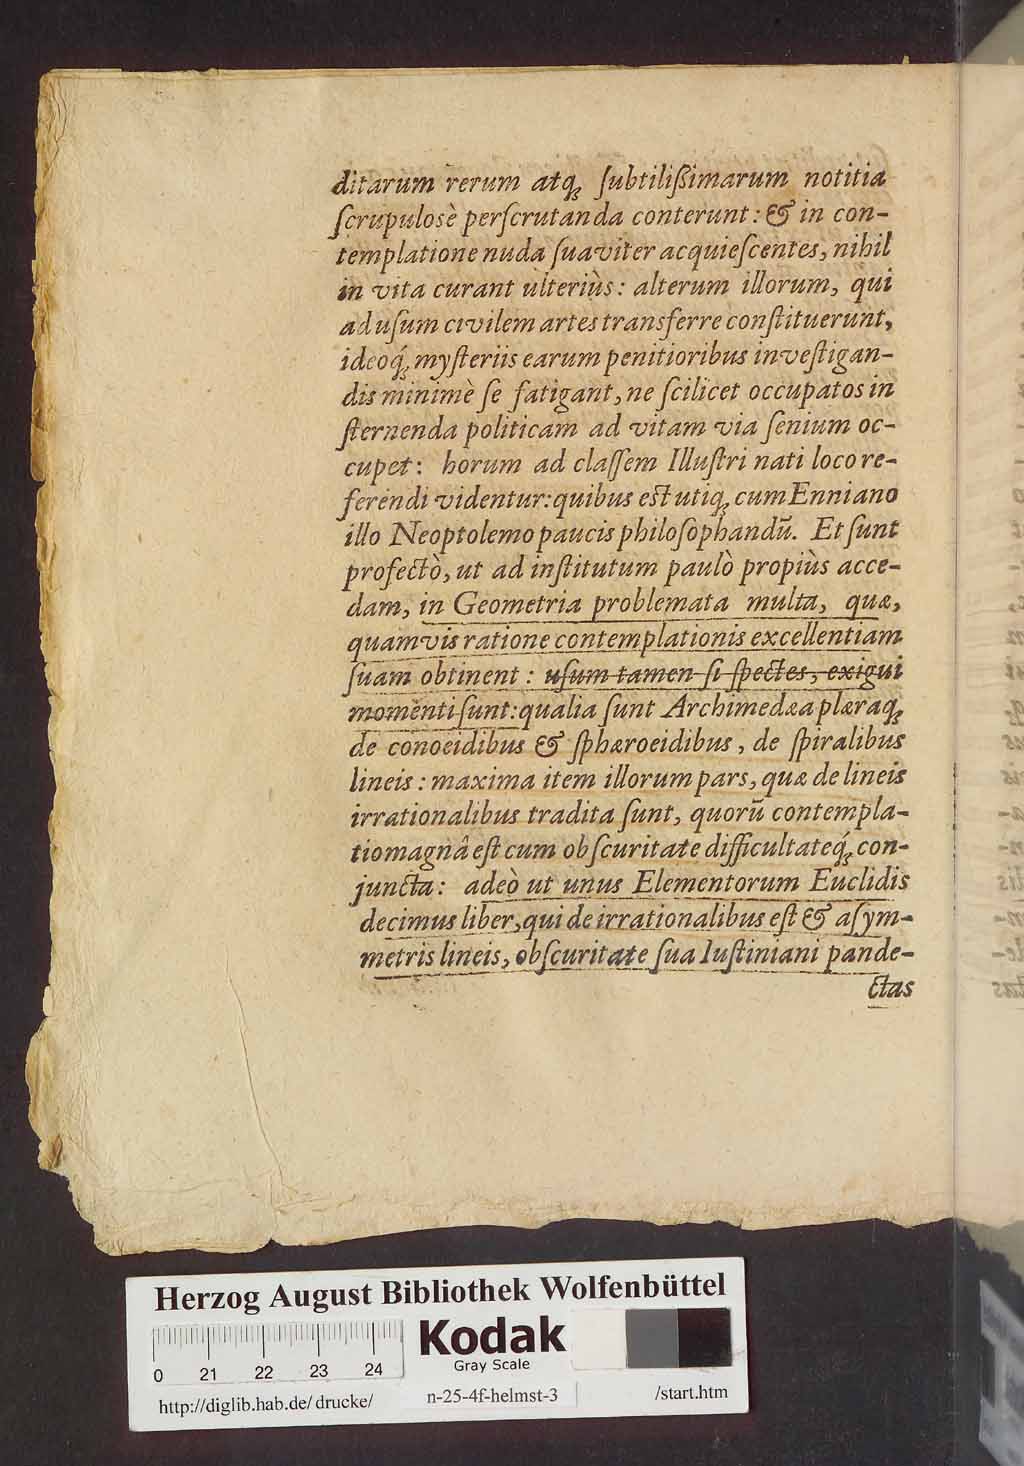 ditarum rerum atq́; ſubtilißimarum notitia
ſcrupulosè perſcrutanda conterunt: & in con-
templatione nuda ſuaviter acquieſcentes, nihil
in vita curant ulteriùs: alterum illorum, qui
ad uſum civilem artes transferre conſtituerunt,
ideoq́; myſteriis earum penitioribus inveſtigan-
dis minimè ſe fatigant, ne ſcilicet occupatos in
ſternenda politicam ad vitam via ſenium oc-
cupet: horum ad claſſem Illuſtri nati loco re-
ferendi videntur: quibus eſt utiq; cum Enniano
illo Neoptolemo paucis philoſophandū. Et ſunt
profectò, ut ad inſtitutum paulò propiùs acce-
dam, in Geometria problemata multa, quæ,
quamvis ratione contemplationis excellentiam
ſuam obtinent: uſum tamen ſi ſpectes, exigui
momenti ſunt: qualia ſunt Archimedæa plæraq;
de conoeidibus & ſphæroeidibus, de ſpiralibus
lineis: maxima item illorum pars, quæ de lineis
irrationalibus tradita ſunt, quorū contempla-
tio magnâ eſt cum obſcuritate difficultateq́; con-
juncta: adeò ut unus Elementorum Euclidis
decimus liber, qui de irrationalibus eſt & aſym-
metris lineis, obſcuritate ſua Iuſtiniani pande-
ctas
Herzog August Bibliothek Wolfenbüttel
Kodak
Gray Scale
0 21 22 23 24
http://diglib.hab.de/drucke/ n-25-4f-helmst-3 /start.htm